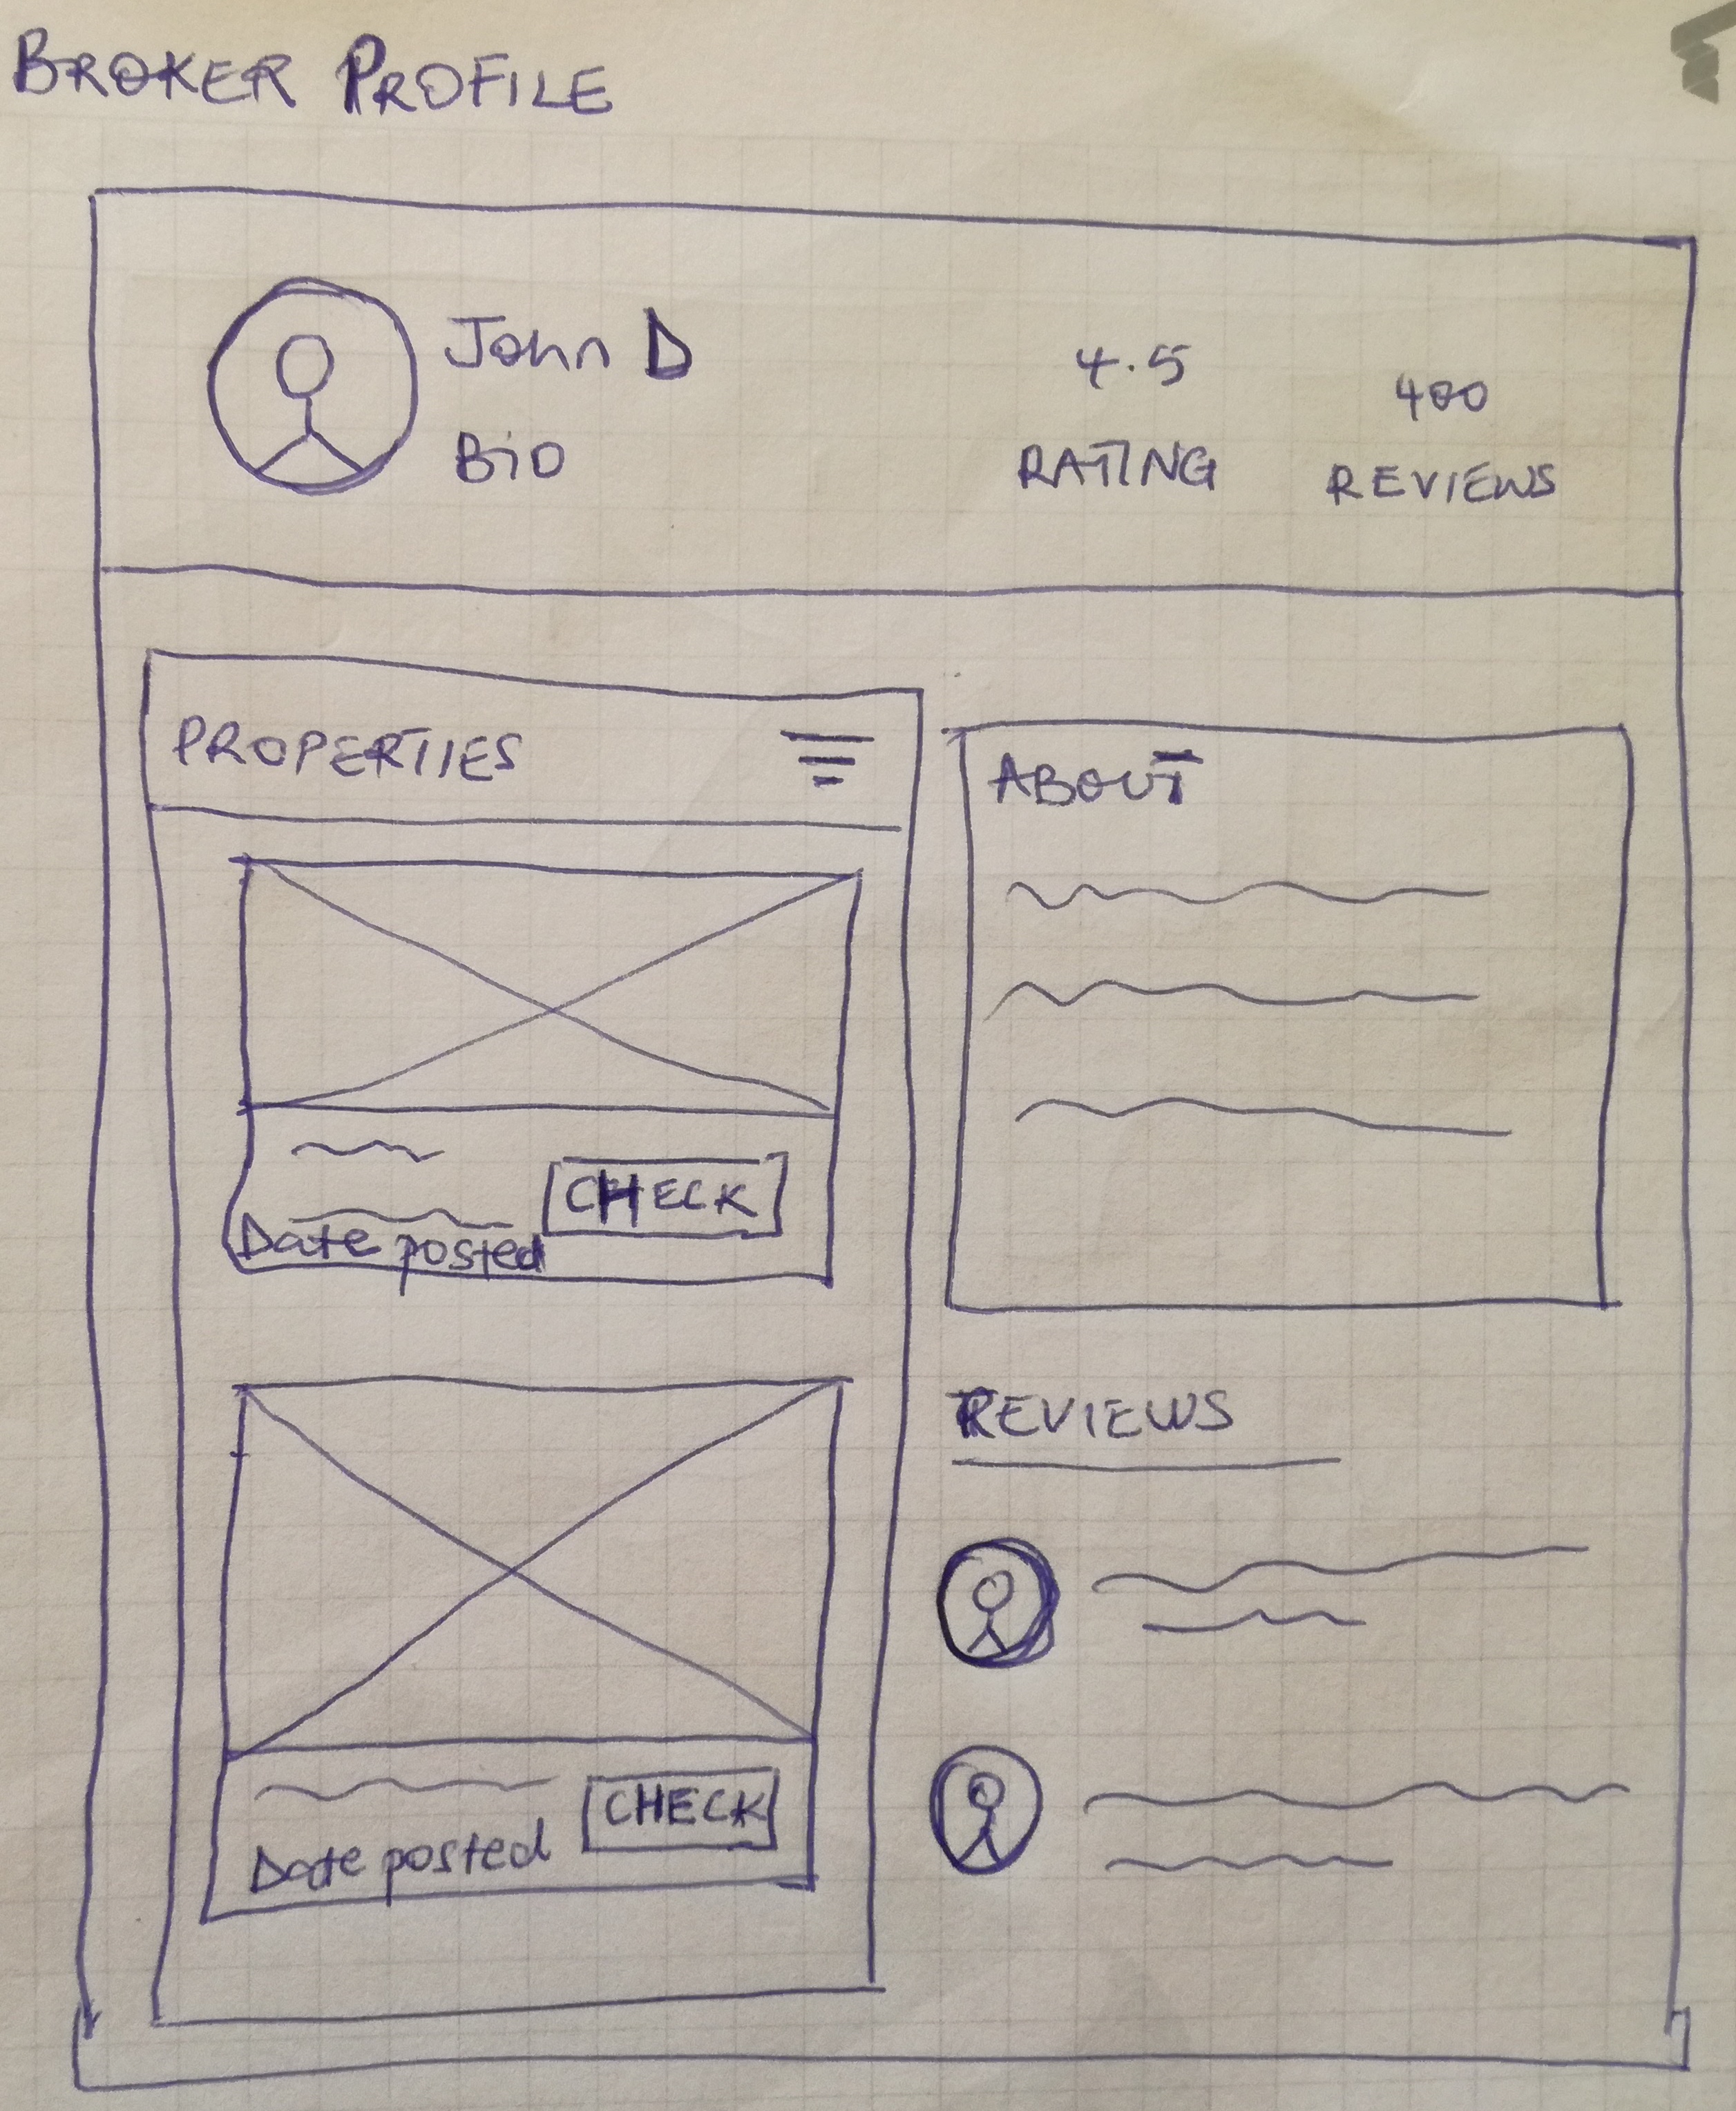 BROKER PROFILE
John D
Bio
4.5
RATING
400
REVIEWS
PROPERTIES
CHECK
Date posted
CHECK
Date posted
ABOUT
REVIEWS